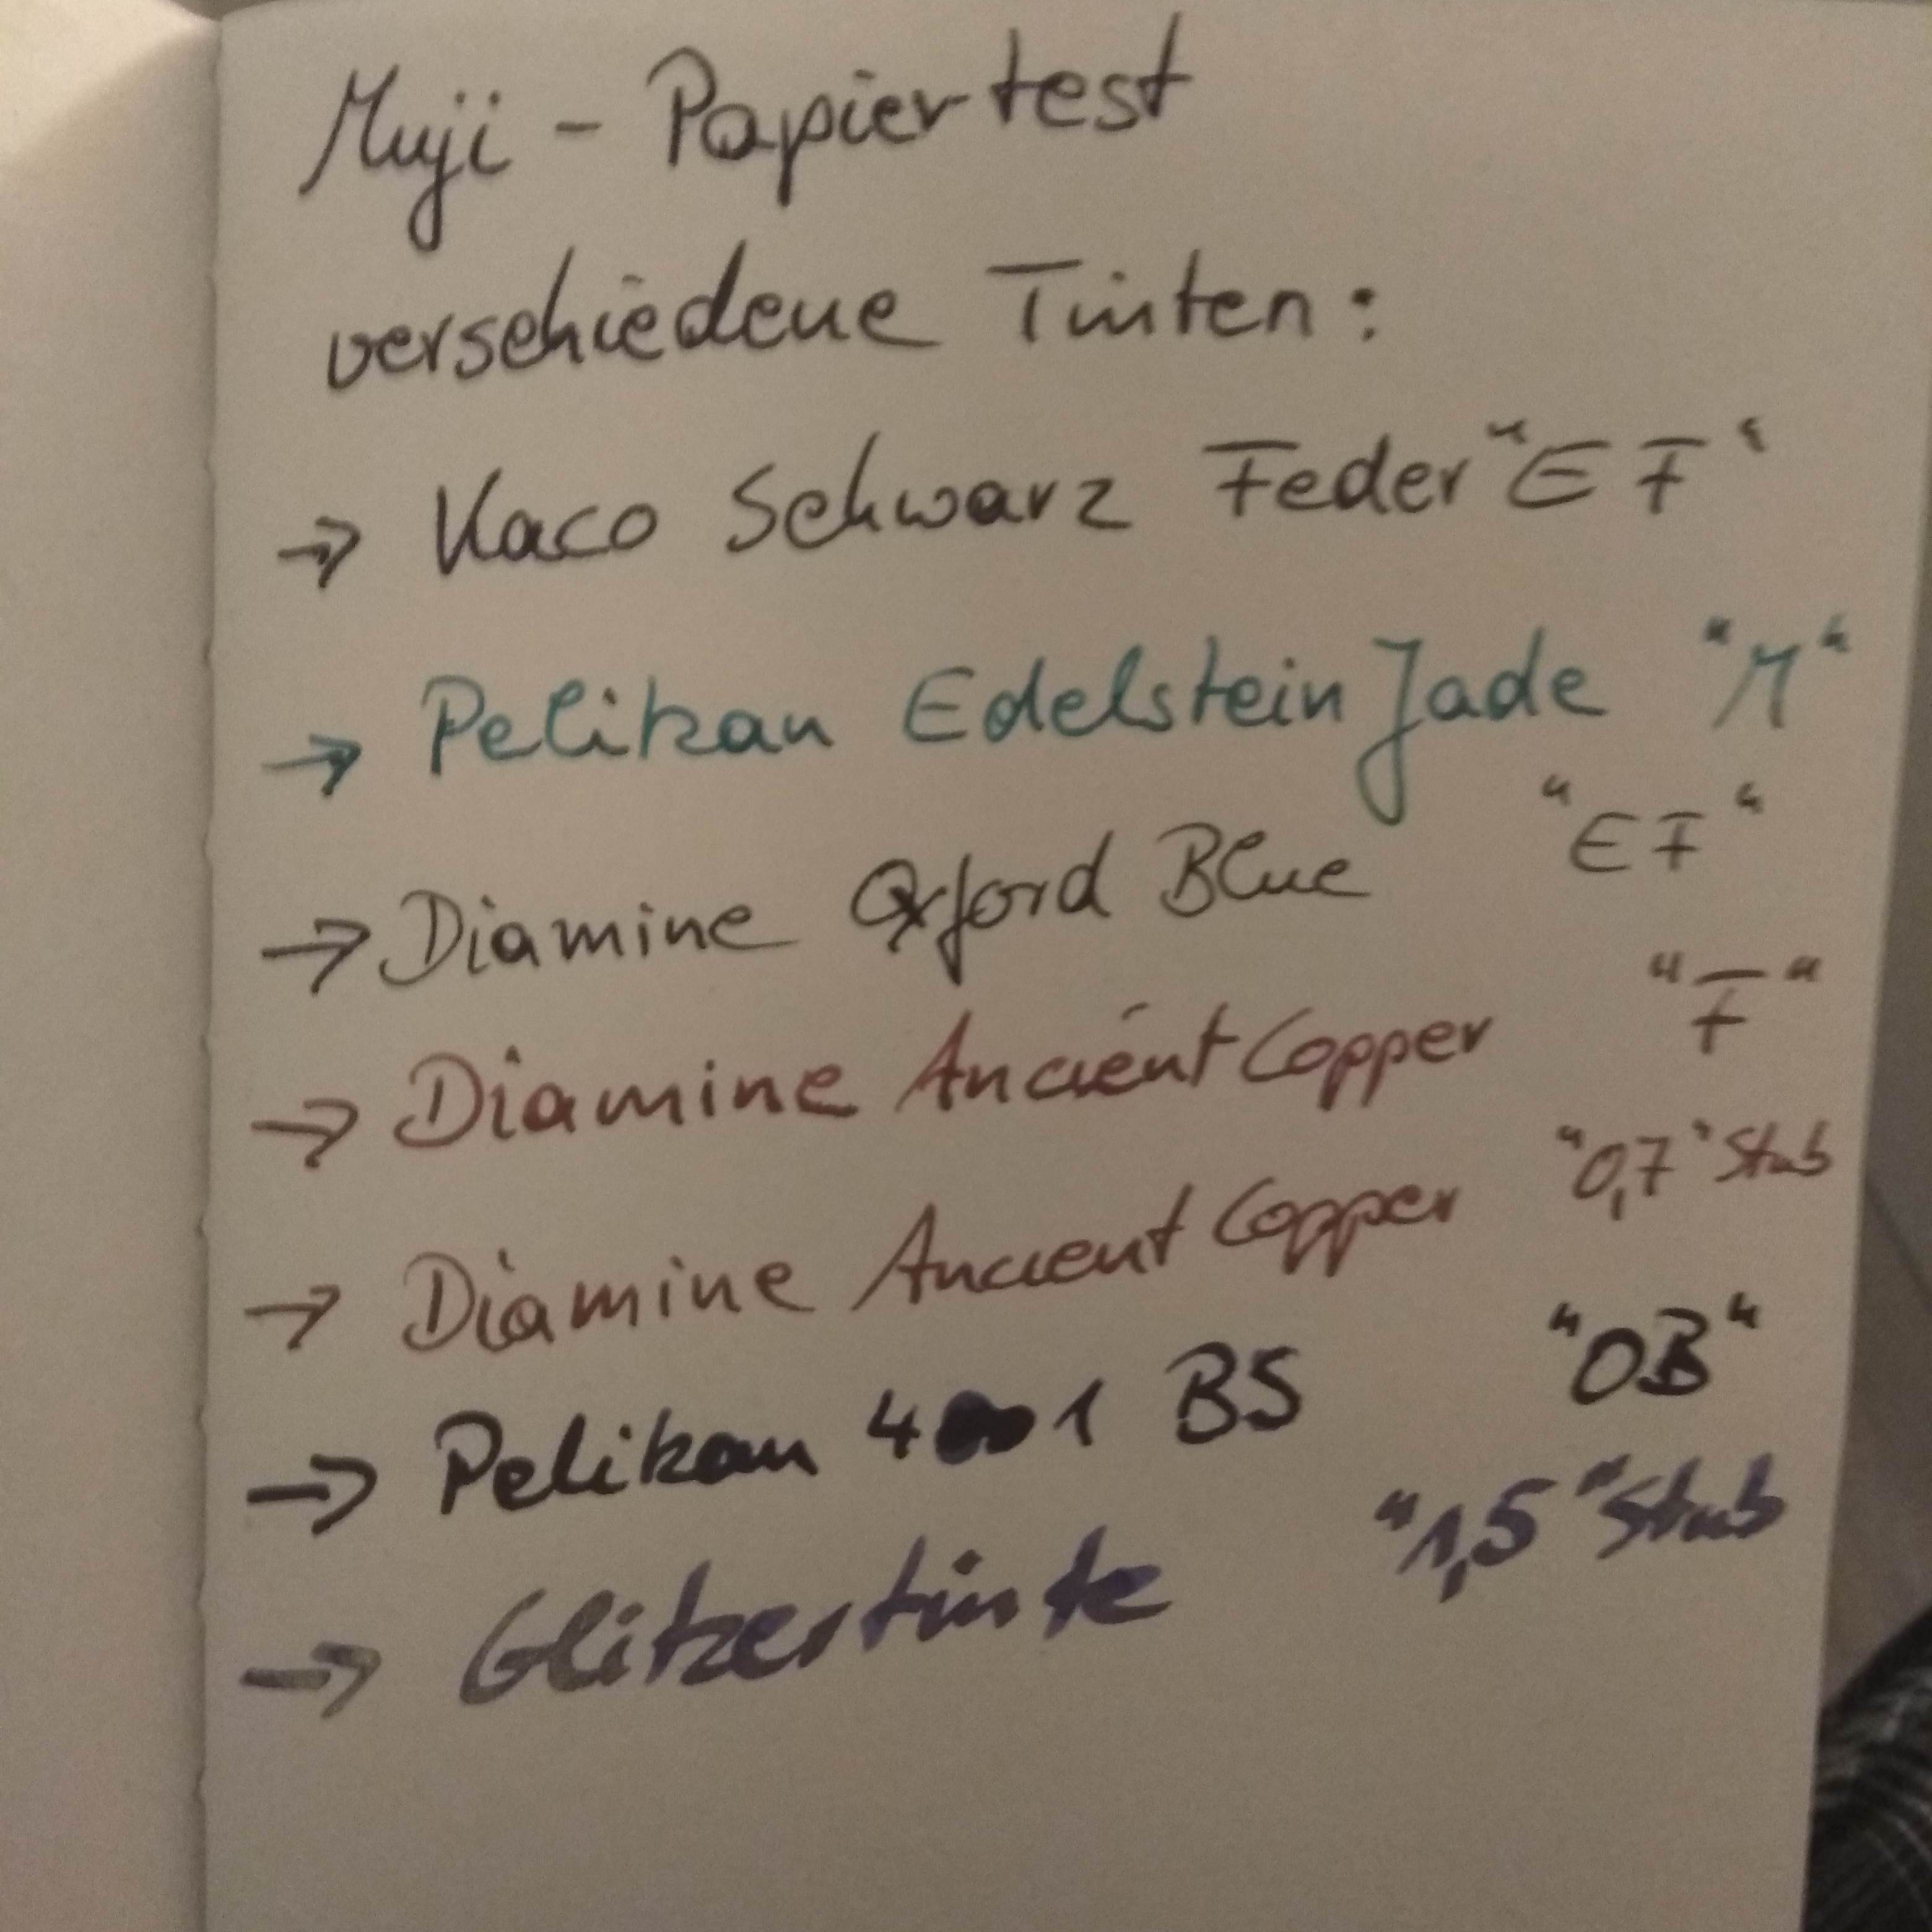 Muji - Papiertest
verschiedene Tinten:
→ Kaco Schwarz Feder "EF"
→ Pelikan Edelstein Jade "M"
→ Diamine Oxford Blue "EF"
→ Diamine Ancient Copper "F"
→ Diamine Ancient Copper "0,7" Stub
→ Pelikan 4001 BS "OB"
→ Glitzertinte "1,5" Stub